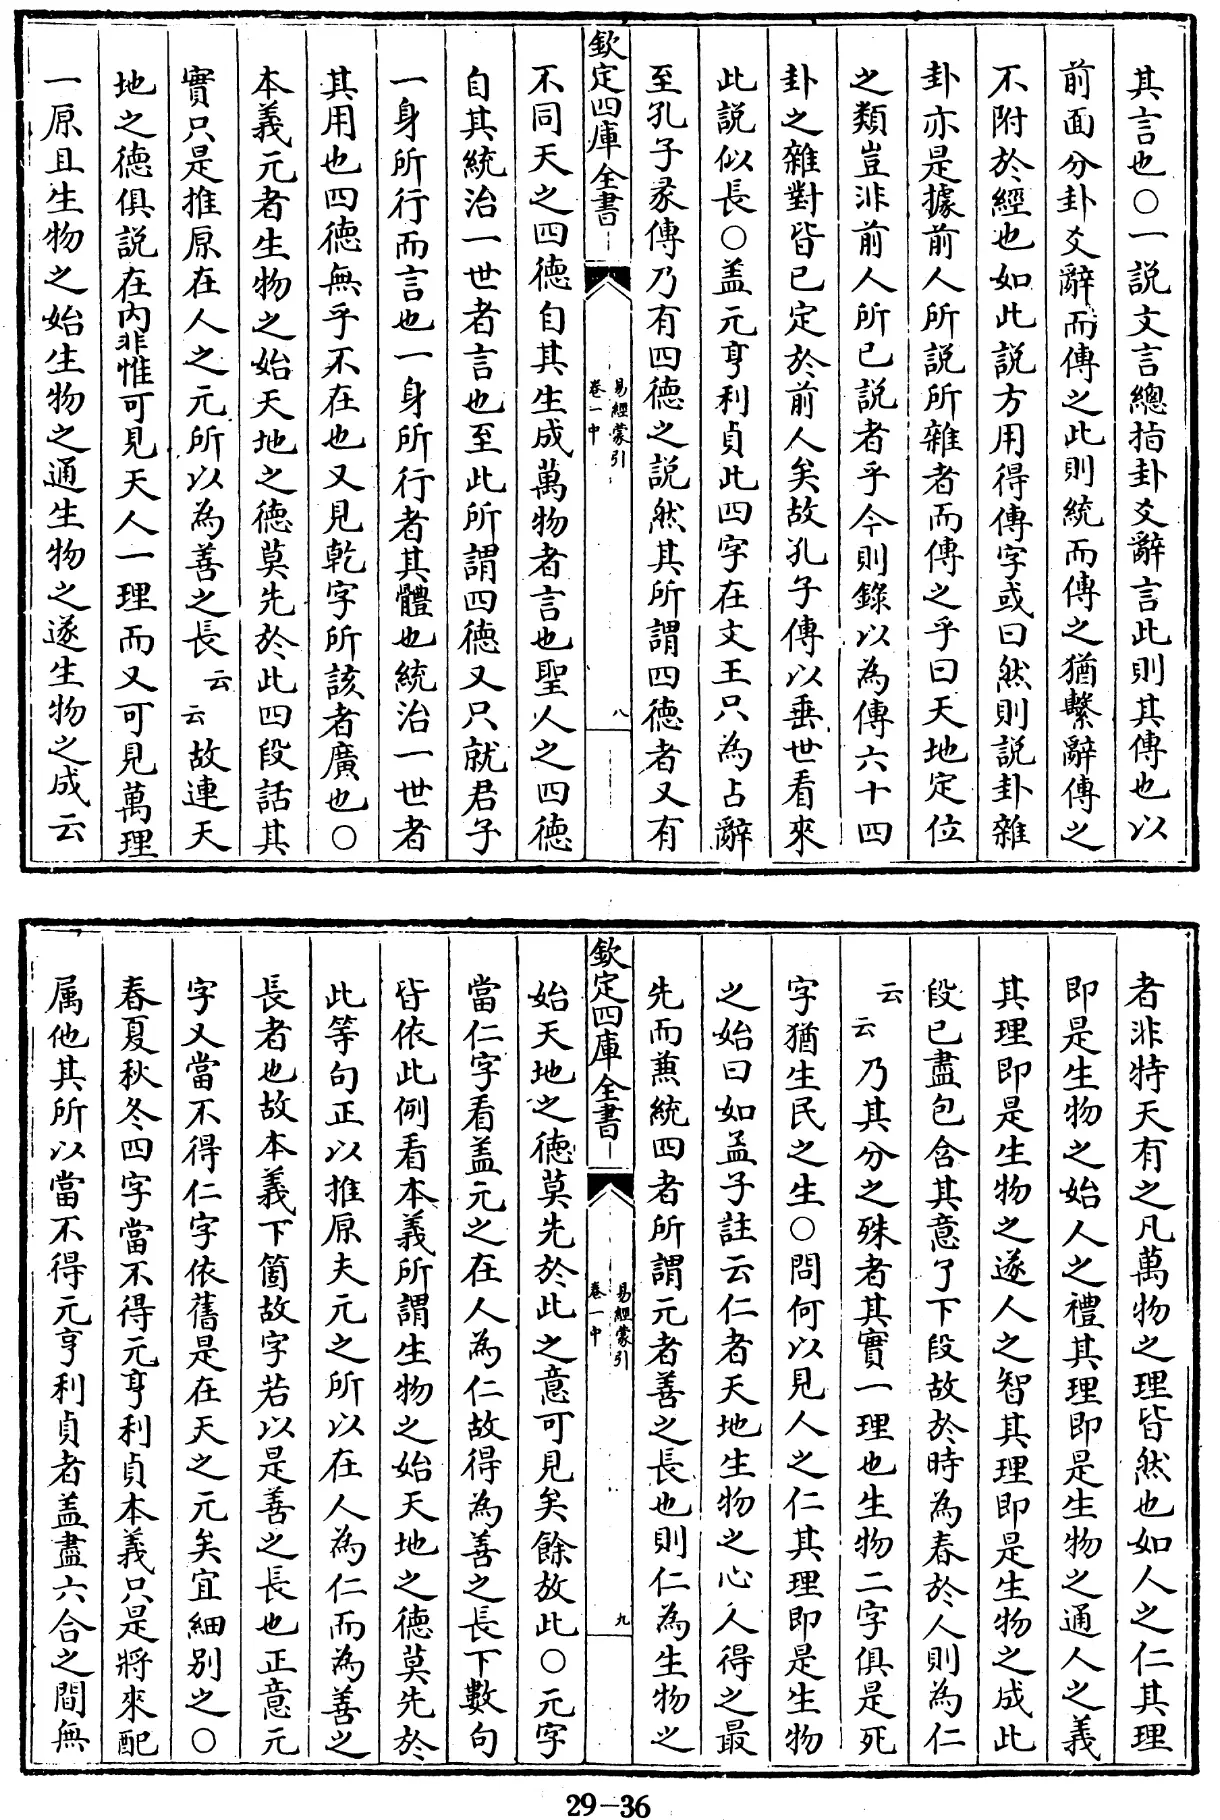 其言也○一說文言總指卦爻辭言此則其傳也以
前面分卦爻辭而傳之此則統而傳之猶繫辭傳之
不附於經也如此說方用得傳字或曰然則說卦雜
卦亦是據前人所說所雜者而傳之乎曰天地定位
之類豈非前人所已說者乎今則錄以為傳六十四
卦之雜對皆已定於前人矣故孔子傳以垂世看來
此說似長○盖元亨利貞此四字在文王只為占辭
至孔子彖傳乃有四德之說然其所謂四德者又有
欽定四庫全書
易經蒙引
卷一中
八
不同天之四德自其生成萬物者言也聖人之四德
自其統治一世者言也至此所謂四德又只就君子
一身所行而言也一身所行者其體也統治一世者
其用也四德無乎不在也又見乾字所該者廣也○
本義元者生物之始天地之德莫先於此四段話其
實只是推原在人之元所以為善之長云云故連天
地之德俱說在内非惟可見天人一理而又可見萬理
一原且生物之始生物之通生物之遂生物之成云
者非特天有之凡萬物之理皆然也如人之仁其理
即是生物之始人之禮其理即是生物之通人之義
其理即是生物之遂人之智其理即是生物之成此
段已盡包含其意了下段故於時為春於人則為仁
云云乃其分之殊者其實一理也生物二字俱是死
字猶生民之生○問何以見人之仁其理即是生物
之始曰如孟子註云仁者天地生物之心人得之最
先而兼統四者所謂元者善之長也則仁為生物之
欽定四庫全書
易經蒙引
卷一中
九
始天地之德莫先於此之意可見矣餘放此○元字
當仁字看盖元之在人為仁故得為善之長下數句
皆依此例看本義所謂生物之始天地之德莫先於
此等句正以推原夫元之所以在人為仁而為善之
長者也故本義下箇故字若以是善之長也正意元
字又當不得仁字依舊是在天之元矣宜細别之○
春夏秋冬四字當不得元亨利貞本義只是將來配
属他其所以當不得元亨利貞者盖盡六合之間無
29-36